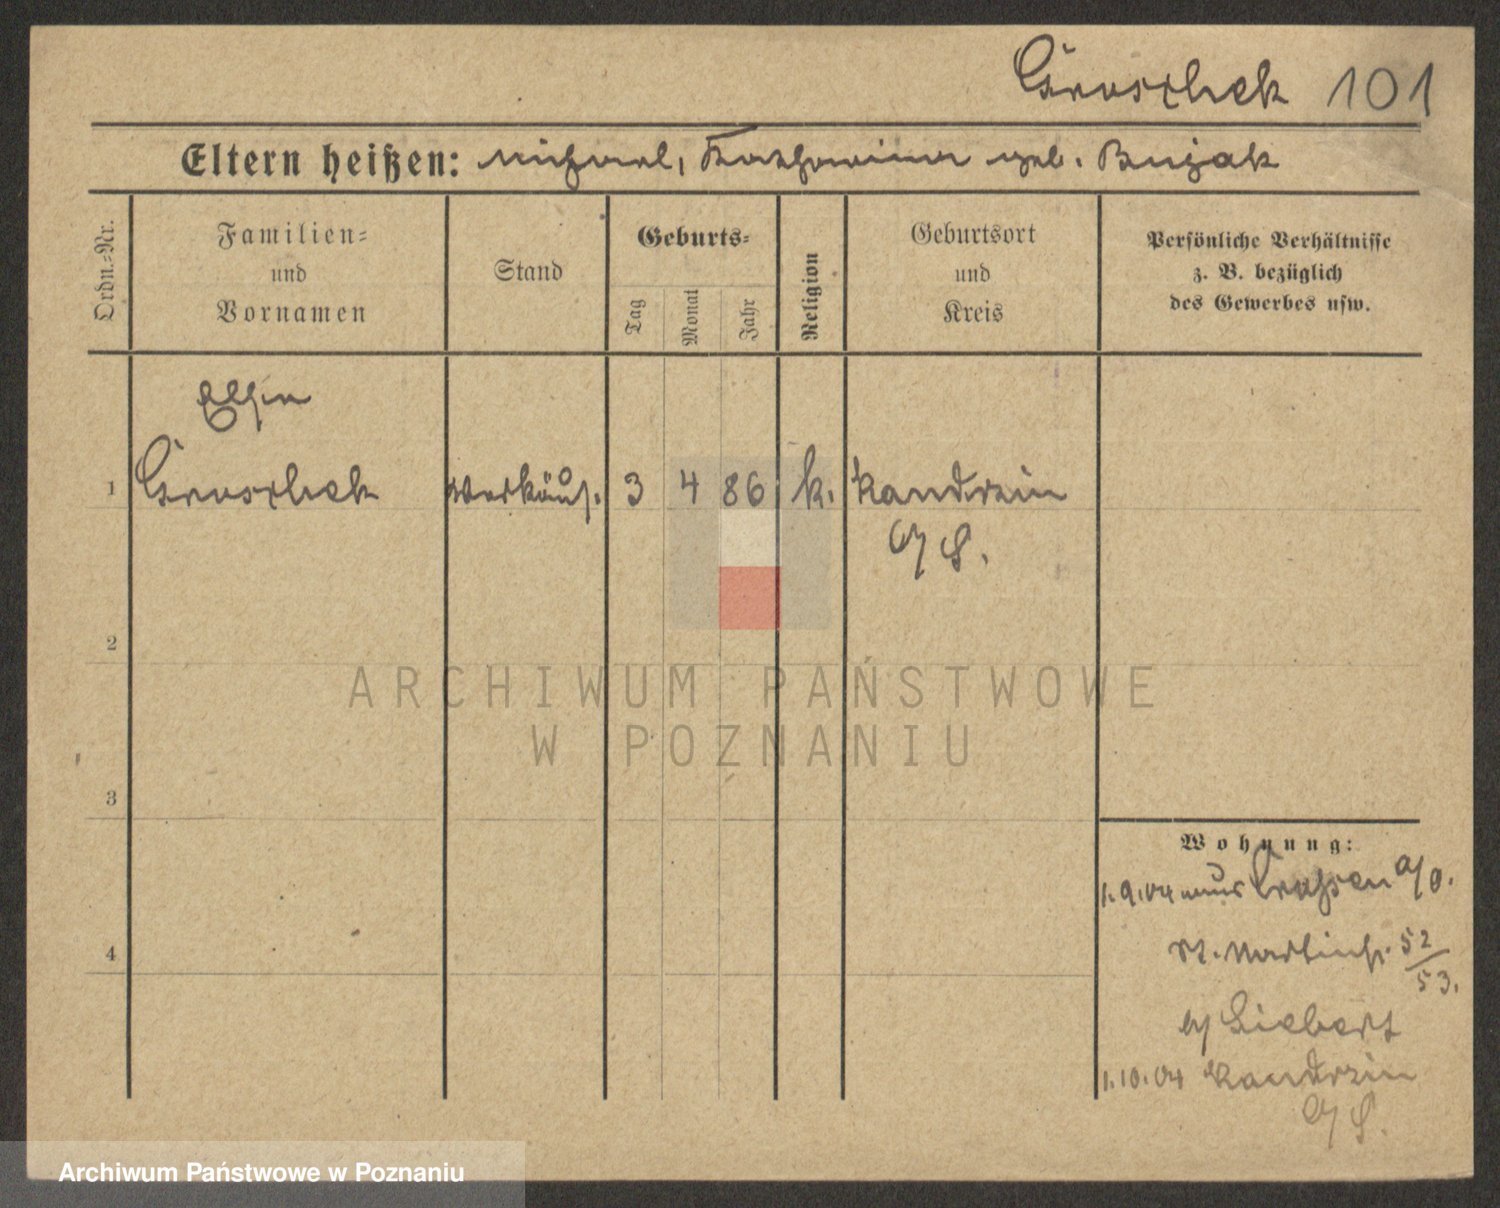 Gruschek 101
Eltern heißen: Michael, Katharina geb. Bujak
Ordn.=Nr.
Familien=
und
Vornamen
Stand
Geburts=
Tag
Monat
Jahr
Religion
Geburtsort
und
Kreis
Persönliche Verhältnisse
z. B. bezüglich
des Gewerbes usw.
1
Gruschek
Verkäuf. 3 4 86 k. Kandrzin
O/S.
2
3
4
ARCHIWUM PAŃSTWOWE
W POZNANIU
Wohnung:
1.9.04 aus Crossen a/O.
St. Martinstr. 52/53.
b/ Siebert
1.10.04 Kandrzin
O/S.
Archiwum Państwowe w Poznaniu